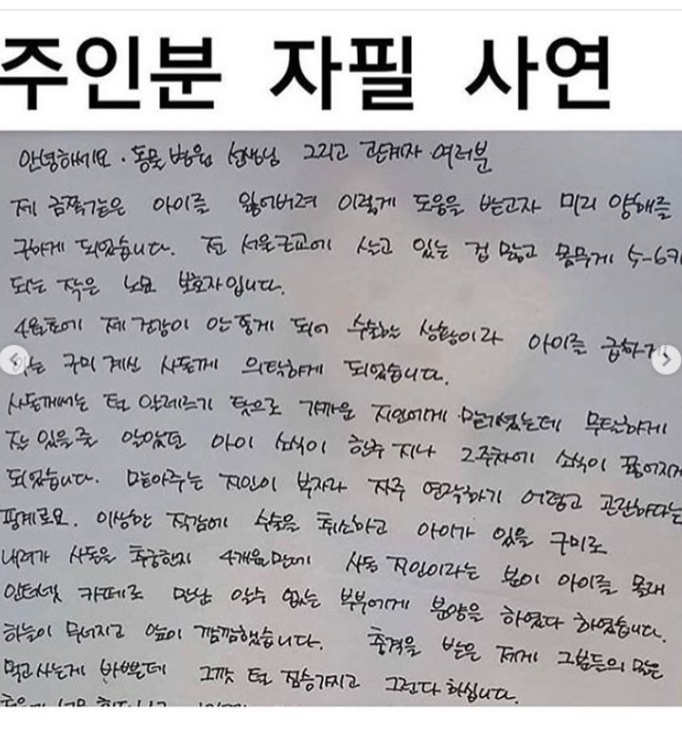 주인분 자필 사연
안녕하세요. 동물 병원 선생님 그리고 관계자 여러분
제 금쪽같은 아이를 잃어버려 이렇게 도움을 받고자 미리 양해를
구하게 되었습니다. 전 서울근교에 살고 있는 겁 많고 몸무게 5-6키
되는 작은 노묘 보호자입니다.
4월초에 제 건강이 안 좋게 되어 수술하는 상황이라 아이를 급하게
구미 계신 사돈께 의탁하게 되었습니다.
사돈께서는 털 알레르기 탓으로 가까운 지인에게 맡기셨는데 무탈하게
잘 있을줄 알았던 아이 소식이 한주 지나 2주차에 소식이 끊어지게
되었습니다. 맡아주는 지인이 부자라 자주 연락하기 어렵고 곤란하다는
핑계로요. 이상한 직감에 수술을 취소하고 아이가 있을 구미로
내려가 사돈을 추궁한지 4개월만에 사돈 지인이라는 분이 아이를 몰래
인터넷 카페로 만난 알수 없는 부부에게 분양을 하였다 하였습니다.
하늘이 무너지고 앞이 깜깜했습니다. 충격을 받은 저에게 그분들의 말은
먹고사는게 바쁜데 그깟 털 짐승가지고 그런다 하십니다.